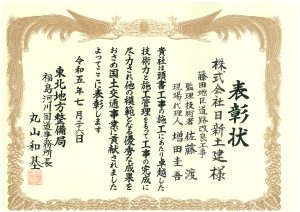 表彰状
株式会社日新土建 様
藤田地区道路改良工事
監理技術者 佐藤 渡
現場代理人 増田 圭吾
貴社は頭書工事の施工にあたり卓越した
技術力と施工管理をもって工事の完成に
尽力され他の模範となる優秀な成果を
おさめ国土交通事業に貢献されました
よってここに表彰します
令和五年七月二十六日
東北地方整備局
福島河川国道事務所長
丸山和基